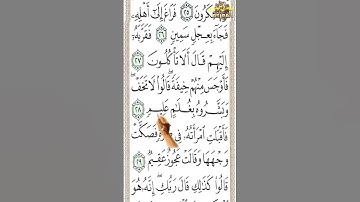 مُّنكَرُونَ ٢٥ فَرَاغَ إِلَىٰٓ أَهْلِهِۦ
فَجَآءَ بِعِجْلٍ سَمِينٍ ٢٦ فَقَرَّبَهُۥٓ
إِلَيْهِمْ قَالَ أَلَا تَأْكُلُونَ ٢٧
فَأَوْجَسَ مِنْهُمْ خِيفَةً ۖ قَالُوا۟ لَا تَخَفْ ۖ
وَبَشَّرُوهُ بِغُلَـٰمٍ عَلِيمٍ ٢٨
فَأَقْبَلَتِ ٱمْرَأَتُهُۥ فِى فَصَكَّتْ
وَجْهَهَا وَقَالَتْ عَجُوزٌ عَقِيمٌ ٢٩
قَالُوا۟ كَذَٰلِكِ قَالَ رَبُّكِ ۖ إِنَّهُۥ هُوَ